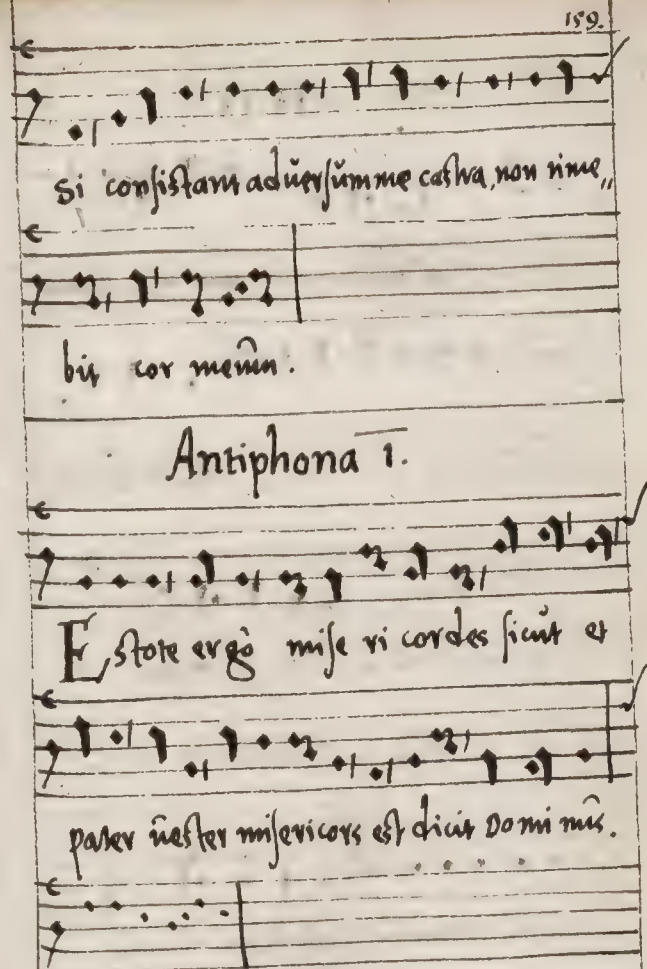 159.
Si consistant adversum me castra, non time,,
bit cor meum.
Antiphona 1.
Estote ergò mise ri cordes sicut et
pater vester misericors est dicit Do mi nus.